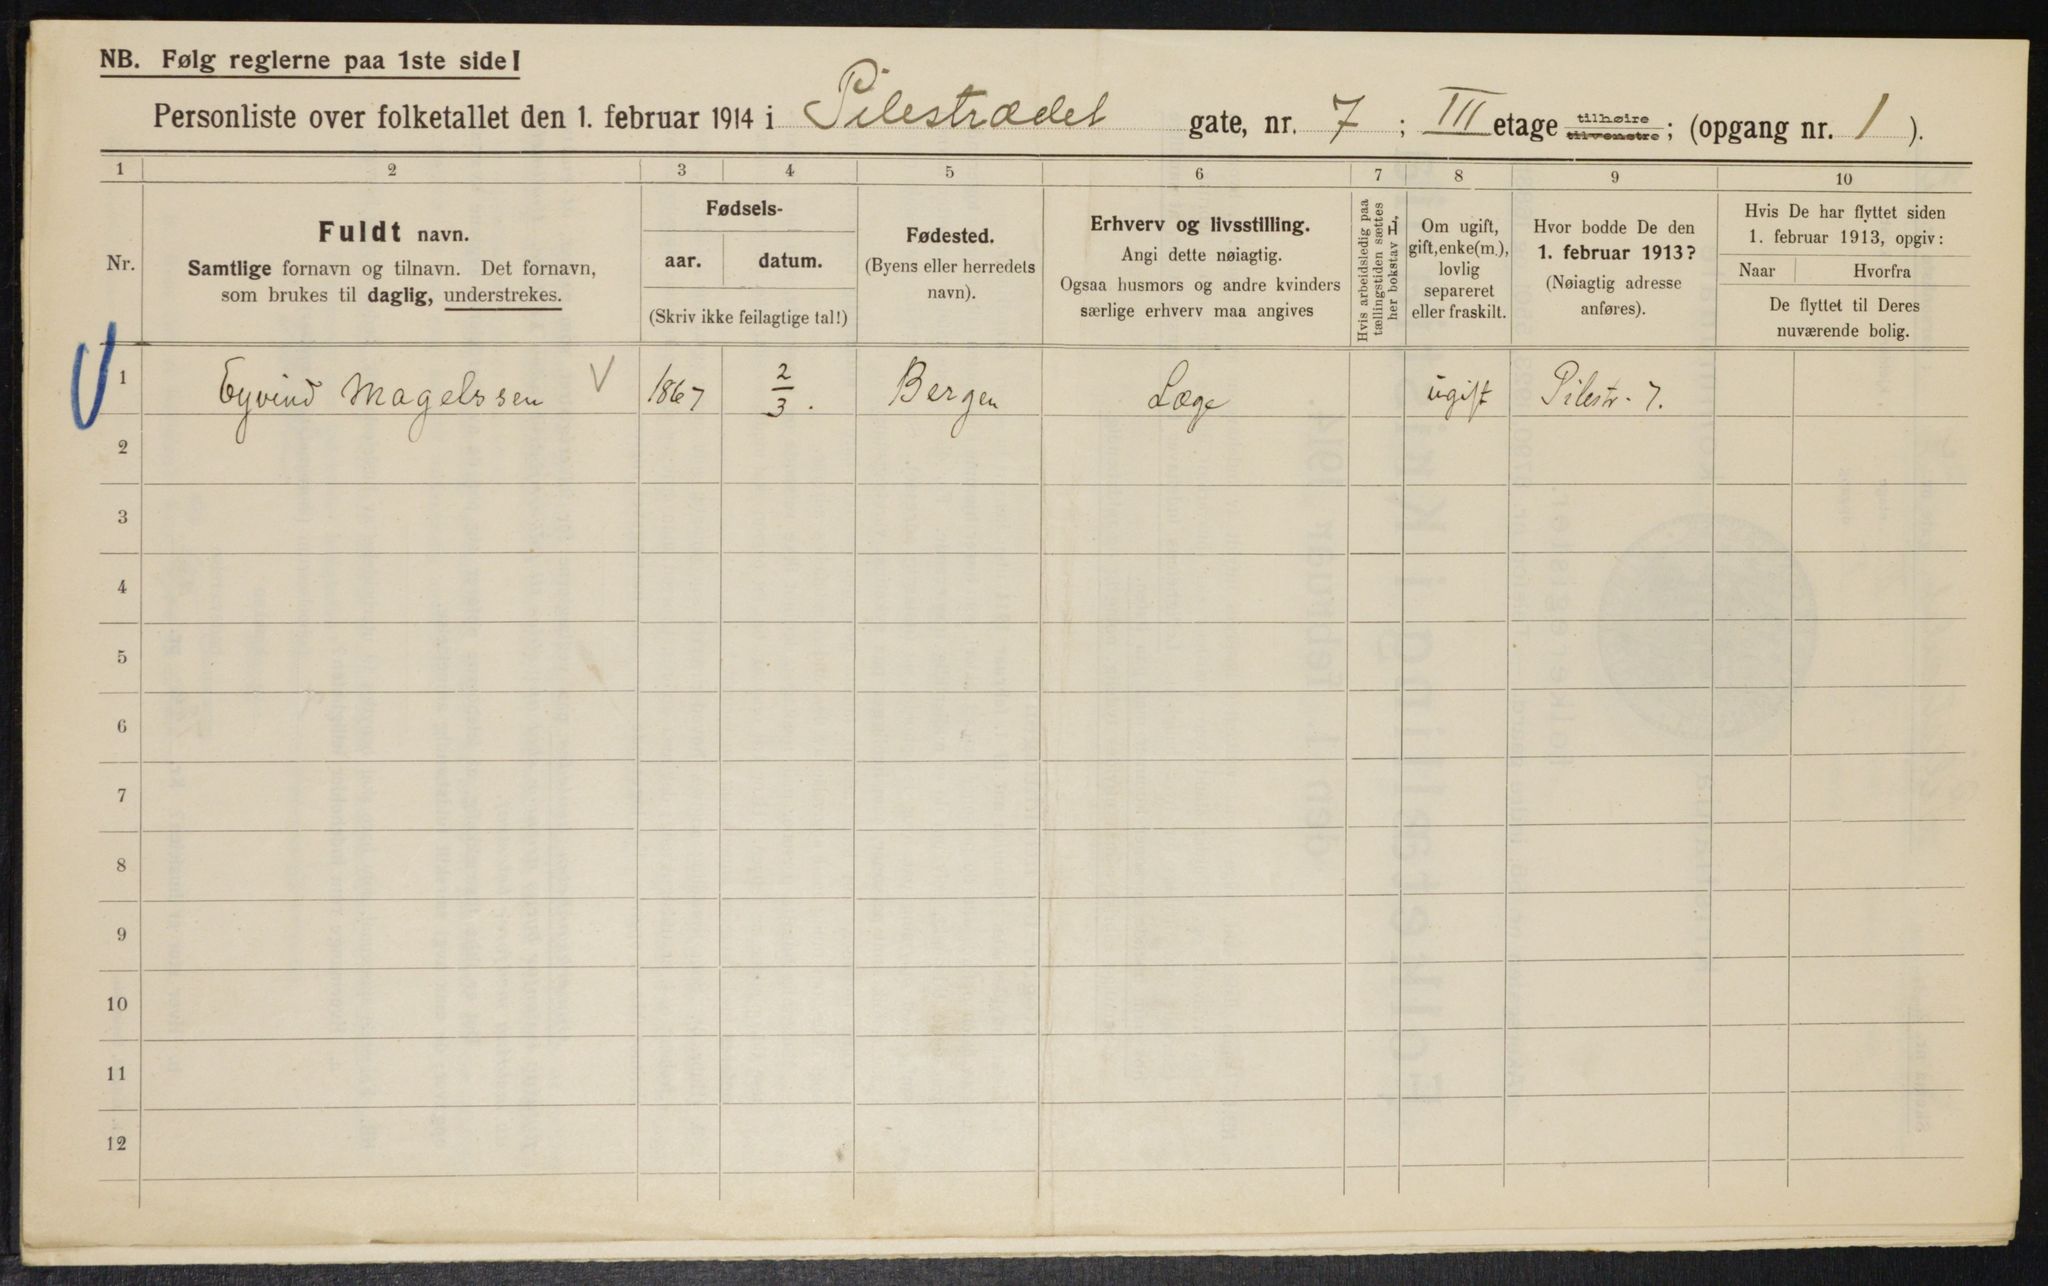 NB. Følg reglerne paa 1ste side!
Personliste over folketallet den 1. februar 1914 i Pilestrædet gate, nr. 7 ; III etage tilhøire tilvenstre ; (opgang nr. 1 ).
1 2 3 4 5 6 7 8 9 10
Nr.
Fuldt navn.
Samtlige fornavn og tilnavn. Det fornavn,
som brukes til daglig, understrekes.
Fødsels-
aar. datum.
(Skriv ikke feilagtige tal!)
Fødested.
(Byens eller herredets
navn).
Erhverv og livsstilling.
Angi dette nøiagtig.
Ogsaa husmors og andre kvinders
særlige erhverv maa angives
Hvis arbeidsledig paa
tællingstiden sættes
her bokstav L,
Om ugift,
gift, enke(m.),
lovlig
separeret
eller fraskilt.
Hvor bodde De den
1. februar 1913?
(Nøiagtig adresse
anføres).
Hvis De har flyttet siden
1. februar 1913, opgiv:
Naar Hvorfra
De flyttet til Deres
nuværende bolig.
1 Eyvind Magelssen V 1867 2/3. Bergen Læge ugift Pilestr. 7.
2
3
4
5
6
7
8
9
10
11
12